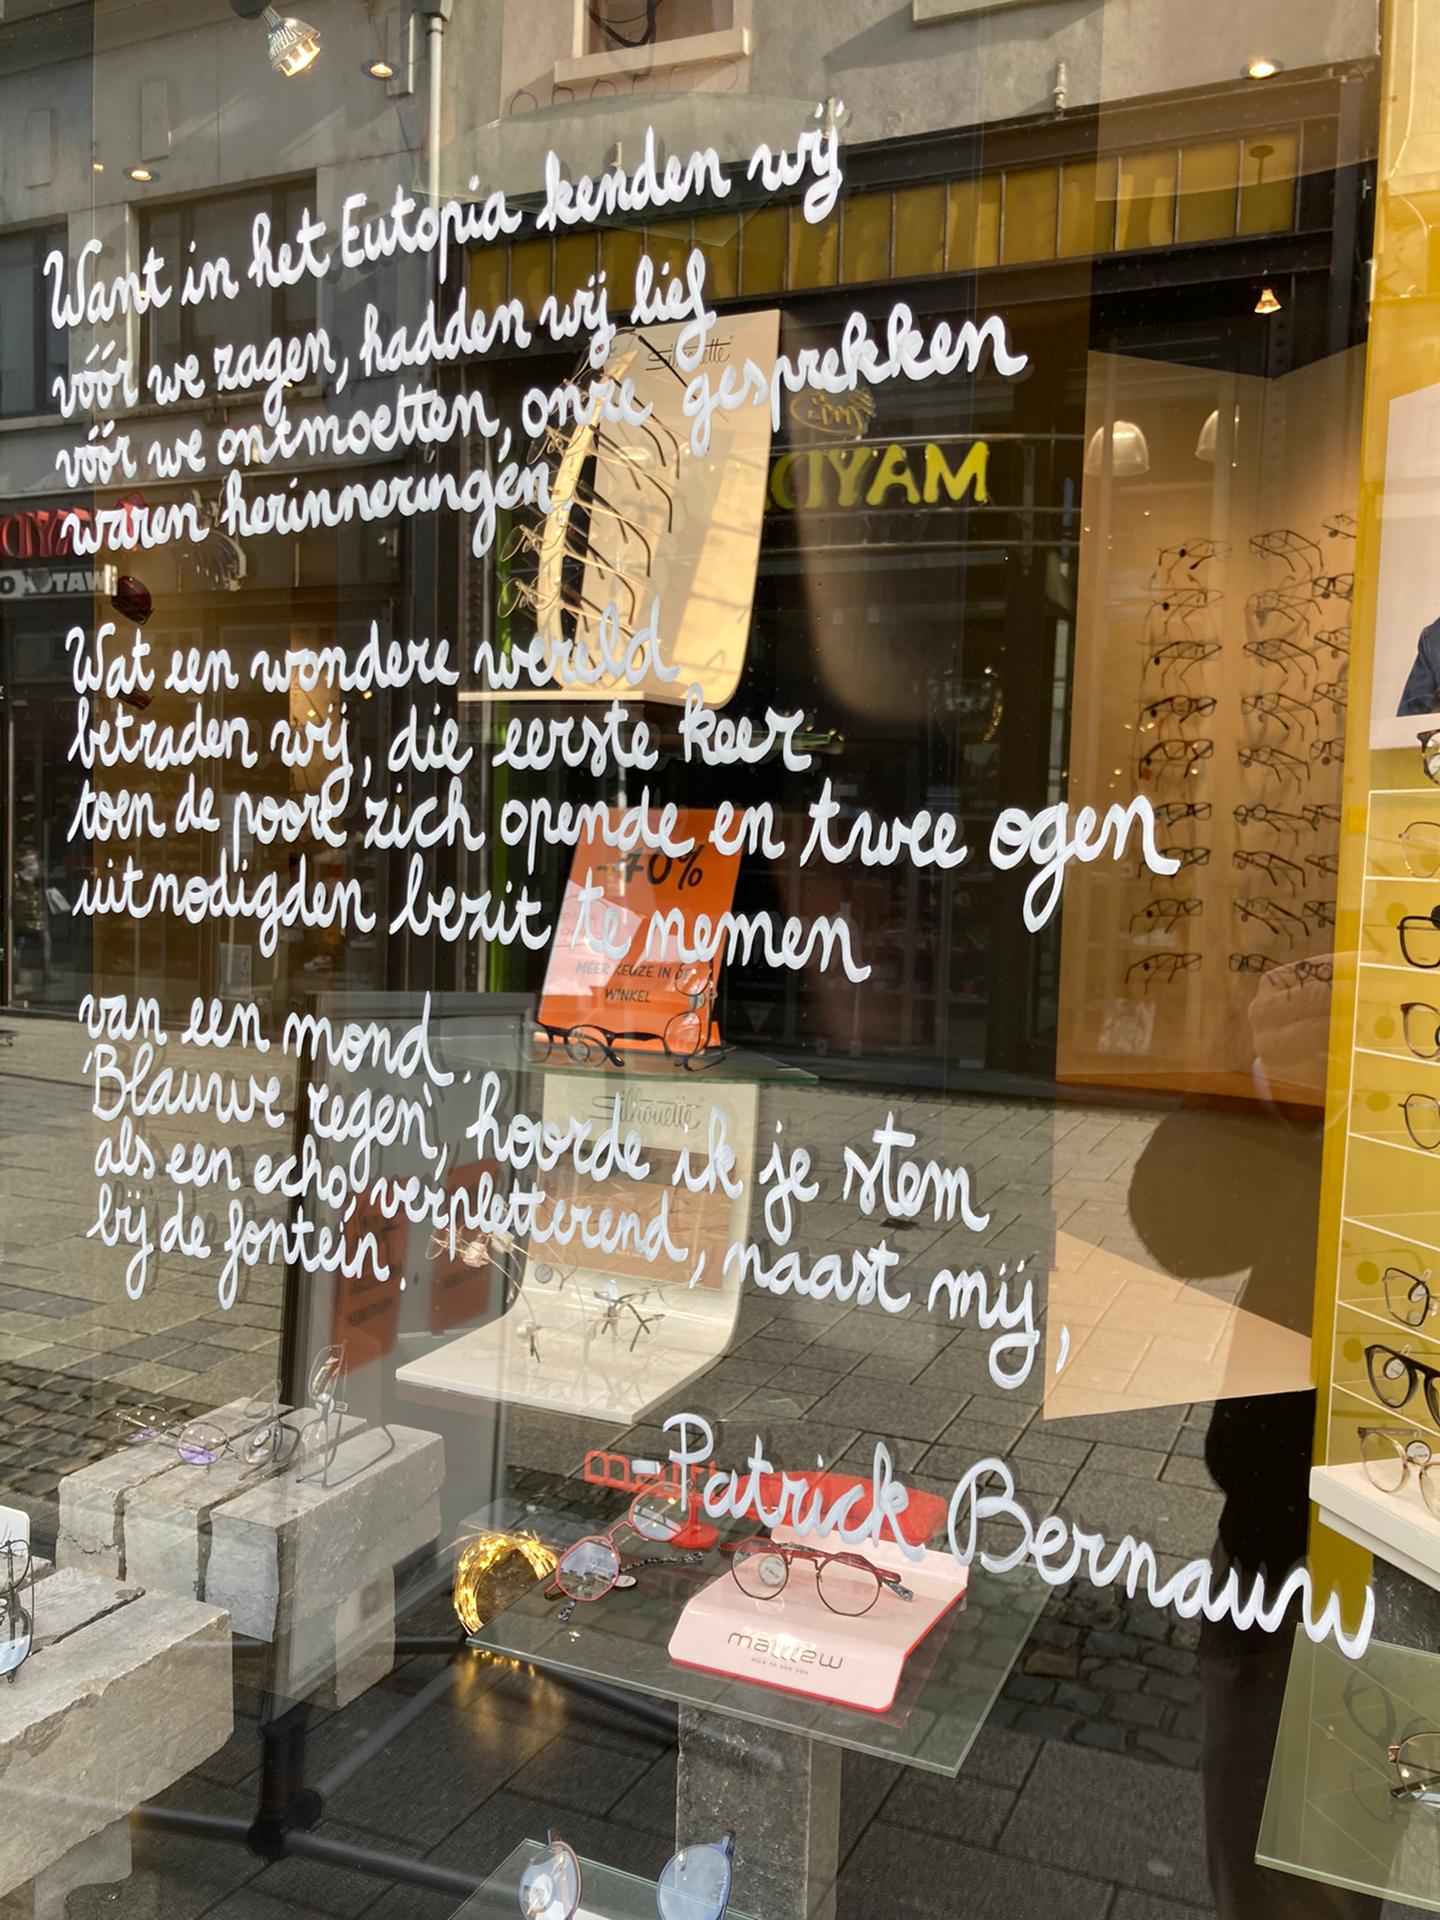 Want in het Eutopia kenden wij
vóór we zagen, hadden wij lief
vóór we ontmoetten, onze gesprekken
waren herinneringen.
Wat een wondere wereld
betraden wij, die eerste keer
toen de poort zich opende en twee ogen
uitnodigden bezit te nemen
van een mond.
'Blauwe regen', hoorde ik je stem
als een echo, verpletterend, naast mij,
bij de fontein.
-Patrick Bernauw
Silhouette
MAYD
-70%
MEER KEUZE IN DE
WINKEL
Silhouette
mattew